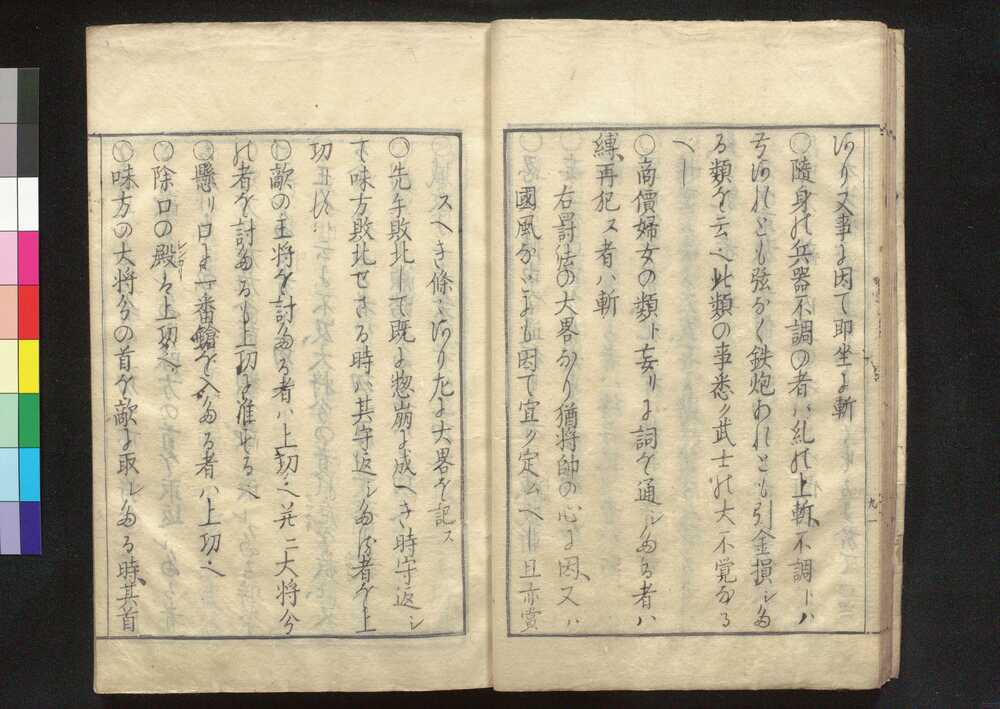 あり又事に因て即坐に斬
○隨身の兵器不調の者ハ糺の上斬、不調トハ
弓あれとも弦なく鉄炮あれとも引金損シたる
る類を云、此類の事悉ク武士の大不覚なる
へし
○商價婦女の類ト妄リに詞を通シたる者ハ
縛、再犯ス者ハ斬
○右罰法の大畧なり猶将帥の心に因、又ハ
○國風なとにも因て宜ク定ムヘし且亦賞
スへき條々あり左に大畧を記ス
○先手敗北して既に惣崩に成へき時守返シ
て味方敗北せさる時ハ其守返シたる者を上
功
○敵の主将を討たる者ハ上功、并ニ大将分
の者を討たるも上功に准せる
○懸リ口に一番鎗を入たる者ハ上功
○除口の殿を上功
シンガリ
○味方の大将分の首を敵に取レたる時、其首
九一